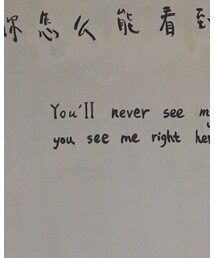 你怎么能看到
You'll never see m
you see me right her